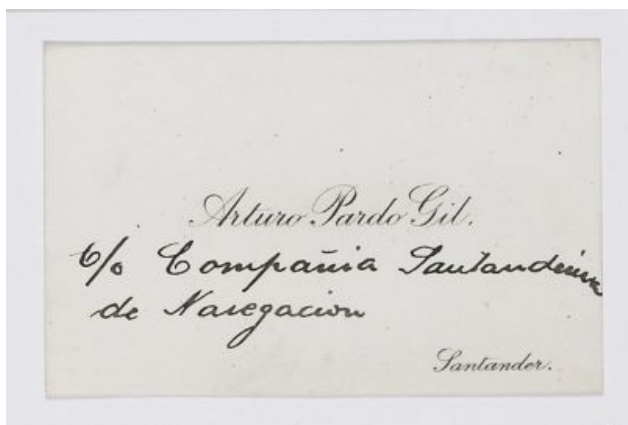 Arturo Pardo Gil.
c/o Compañia Santanderina
de Navegacion
Santander.